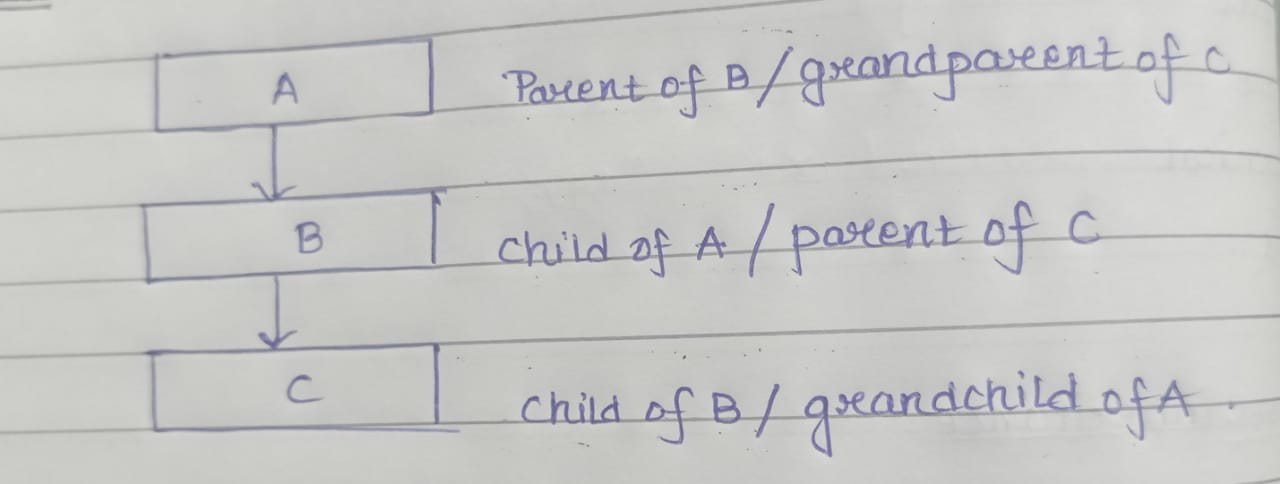 A Parent of B/grandparent of C
B child of A / parent of C
C child of B/ grandchild of A.